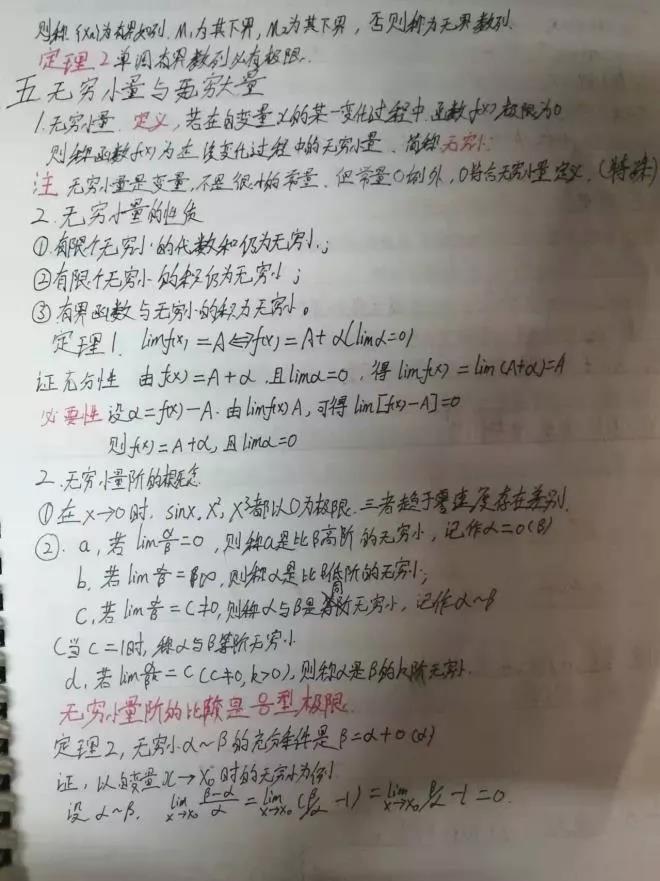 则称{xn}为有界数列. M1为其下界, M2为其下界, 否则称为无界数列.
定理2 单调有界数列必有极限.
五 无穷小量与无穷大量
1.无穷小量. 定义, 若在自变量x的某一变化过程中.函数f(x)极限为0
则称函数f(x)为在该变化过程中的无穷小量. 简称无穷小.
注 无穷小量是变量,不是很小的常量. 但常量0例外, 0符合无穷小量定义.(特殊)
2.无穷小量的性质
①.有限个无穷小的代数和仍为无穷小;
②有限个无穷小的积仍为无穷小;
③有界函数与无穷小的积为无穷小。
定理1. limf(x)=A⇔f(x)=A+α(limα=0)
证 充分性 由f(x)=A+α.且limα=0, 得limf(x)=lim(A+α)=A
必要性 设α=f(x)-A.由limf(x)A,可得lim[f(x)-A]=0
则f(x)=A+α,且limα=0
2.无穷小量阶的概念
①在x→0时. sinx, x², x³都以0为极限.三者趋于零速度存在差别.
②. a,若lim α/β=0,则称α是比β高阶的无穷小, 记作α=o(β)
b.若lim α/β=∞,则称α是比β低阶的无穷小;
C,若lim α/β=C≠0,则称α与β是同阶无穷小, 记作α~β
(当C=1时,称α与β等阶无穷小
d,若lim α/βᵏ=C(C≠0,k>0),则称α是β的k阶无穷小.
无穷小量阶的比较是0/0型极限.
定理2,无穷小α~β的充分条件是β=α+o(α)
证,以自变量x→x₀时的无穷小为例.
设α~β. lim x→x₀ (β-α)/α=lim x→x₀ (β/α-1)=lim x→x₀ β/α-1=0.